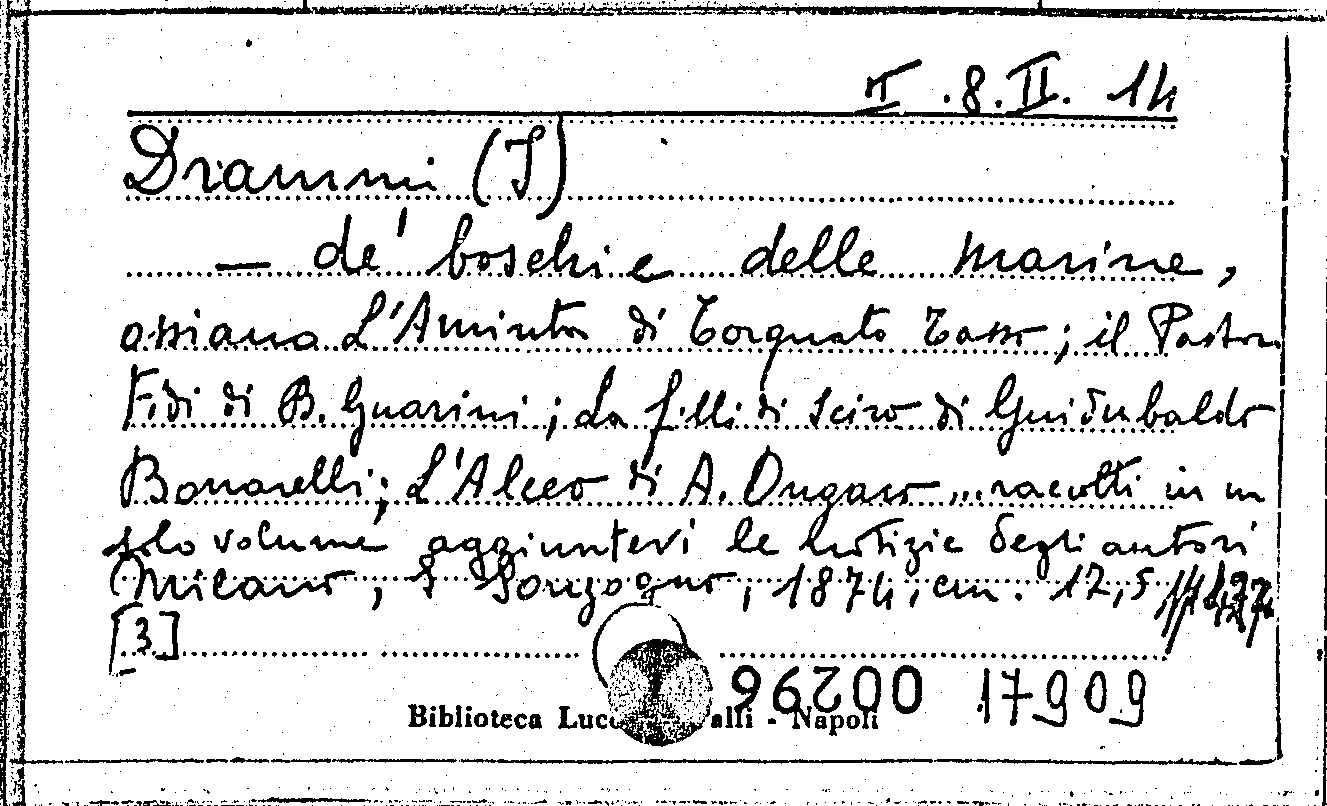 II .8.II. 14
Drammi (I)
— de' boschi e delle marine,
ossiano L'Aminta di Torquato Tasso; il Pastor
Fido di B. Guarini; La Filli di Sciro di Guidubaldo
Bonarelli; L'Alceo di A. Ongaro ... raccolti in un
solo volume aggiuntevi le notizie degli autori
Milano, E Sonzogno, 1874, cm. 17,5
[3]
00296 17909
Biblioteca Luc alli - Napoli